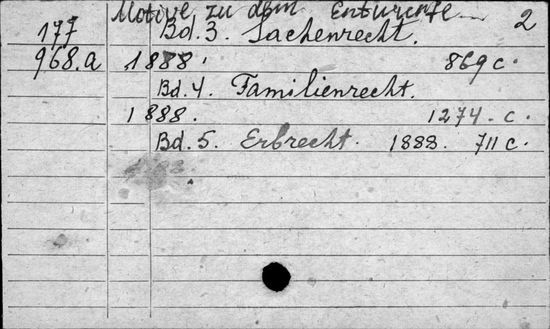 Motive zu dem Entwurfe 2
177 Bd. 3. Sachenrecht.
968.a 1888. 869 c.
Bd. 4. Familienrecht.
1888. 1274. c.
Bd. 5. Erbrecht. 1888. 711 c.